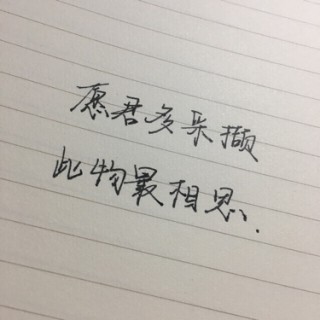 愿君多采撷
此物最相思.